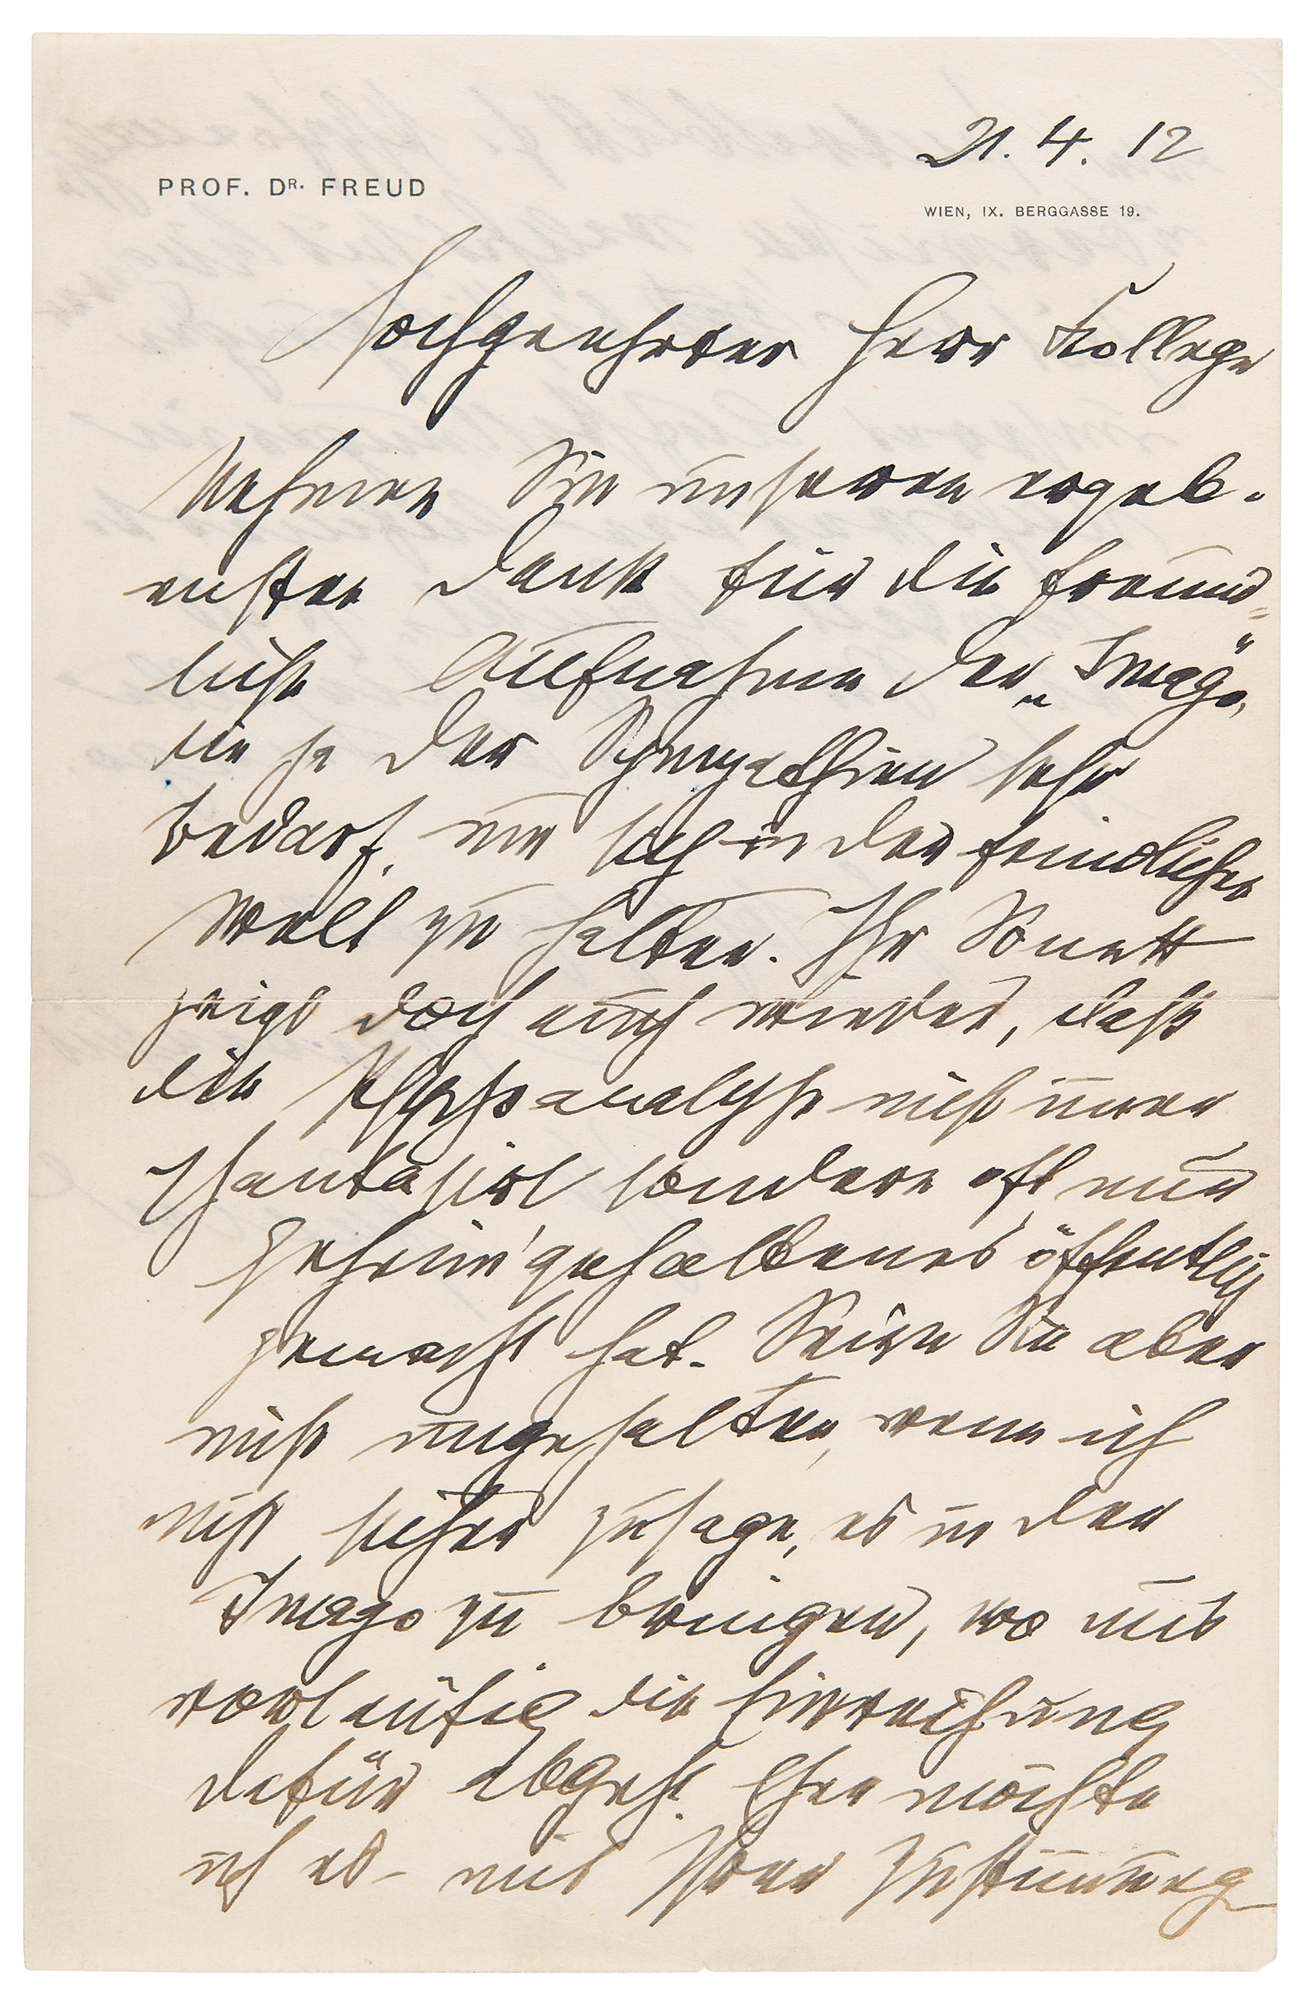 21. 4. 12
PROF. DR. FREUD
WIEN, IX. BERGGASSE 19.
Hochgeehrter Herr Kollege
Nehmen Sie unseren ergeb-
ensten Dank für die freund-
liche Aufnahme der „Imago“,
die ja der Sympathien sehr
bedarf, um sich in der feindlichen
Welt zu halten. Ihr Sonett
zeigt doch auch wieder, daß
die Psychoanalyse nicht
sondern oft nur
geheim gehaltenes öffentlich
gemacht hat. Seien Sie aber
nicht ungehalten, wenn ich
nicht sicher zusage, es in der
Imago zu bringen, wo uns
vorläufig die
dafür abgeht. Eher möchte
ich es mit Ihrer Zustimmung